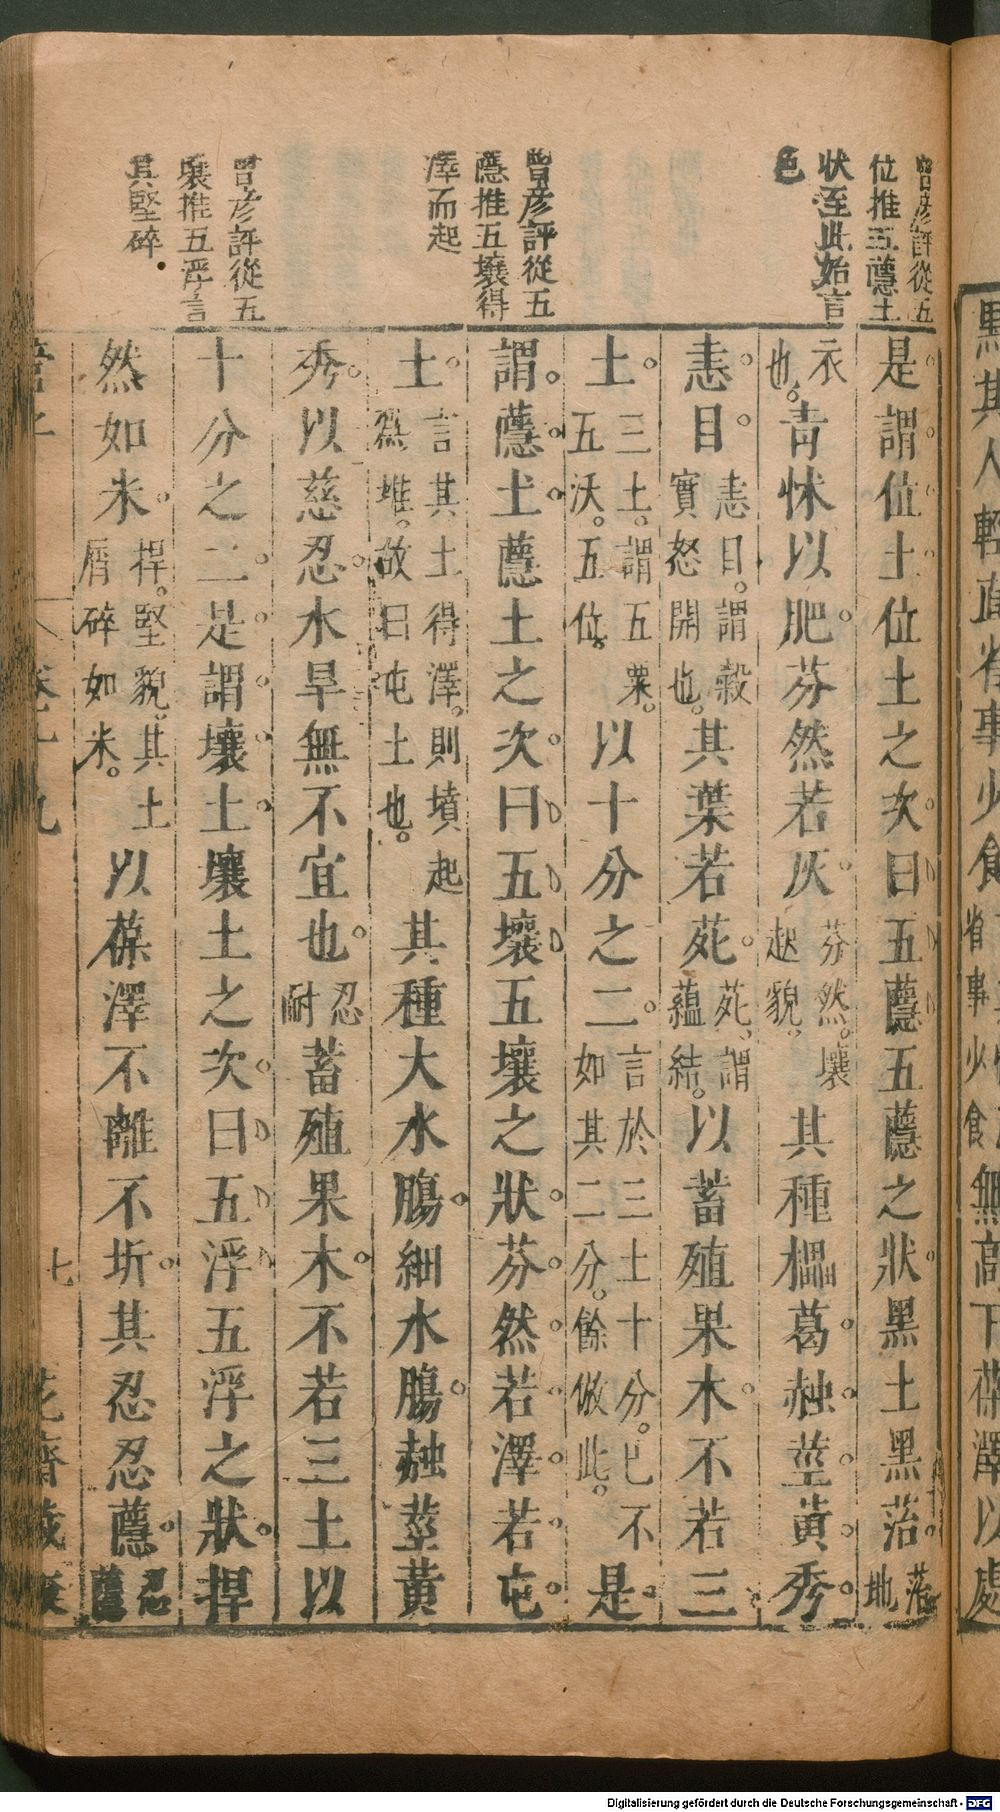 黑其人輕直省事少食無高下葆澤以處
曾彥評從五
位推五蘟土
狀至此始言
色
曾彥評從五
蘟推五壤得
澤而起
曾彥評從五
壤推五浮言
其堅碎
是謂位土位土之次曰五蘟五蘟之狀黑土黑菭菭地
衣也。青怵以肥芬然若灰芬然。壤起貌。其種櫑葛赨莖黃秀
恚目恚目。謂穀實怒開也。其葉若苑苑。謂蘊結。以蓄殖果木不若三
土三土。謂五粟。五沃。五位。以十分之二言於三土十分。已不如其二分。餘倣此。是
謂蘟土蘟土之次曰五壤五壤之狀芬然若澤若屯
土言其土得澤。則墳起爲堆。故曰屯土也。其種大水腸細水腸赨莖黃
秀以慈忍水旱無不宜也忍耐蓄殖果木不若三土以
十分之二是謂壤土壤土之次曰五浮五浮之狀捍
然如米捍。堅貌。其土屑碎如米。以葆澤不離不坼其忍忍蘟忍蘟
管子 卷十九 七 花齋藏板
Digitalisierung gefördert durch die Deutsche Forschungsgemeinschaft - DFG